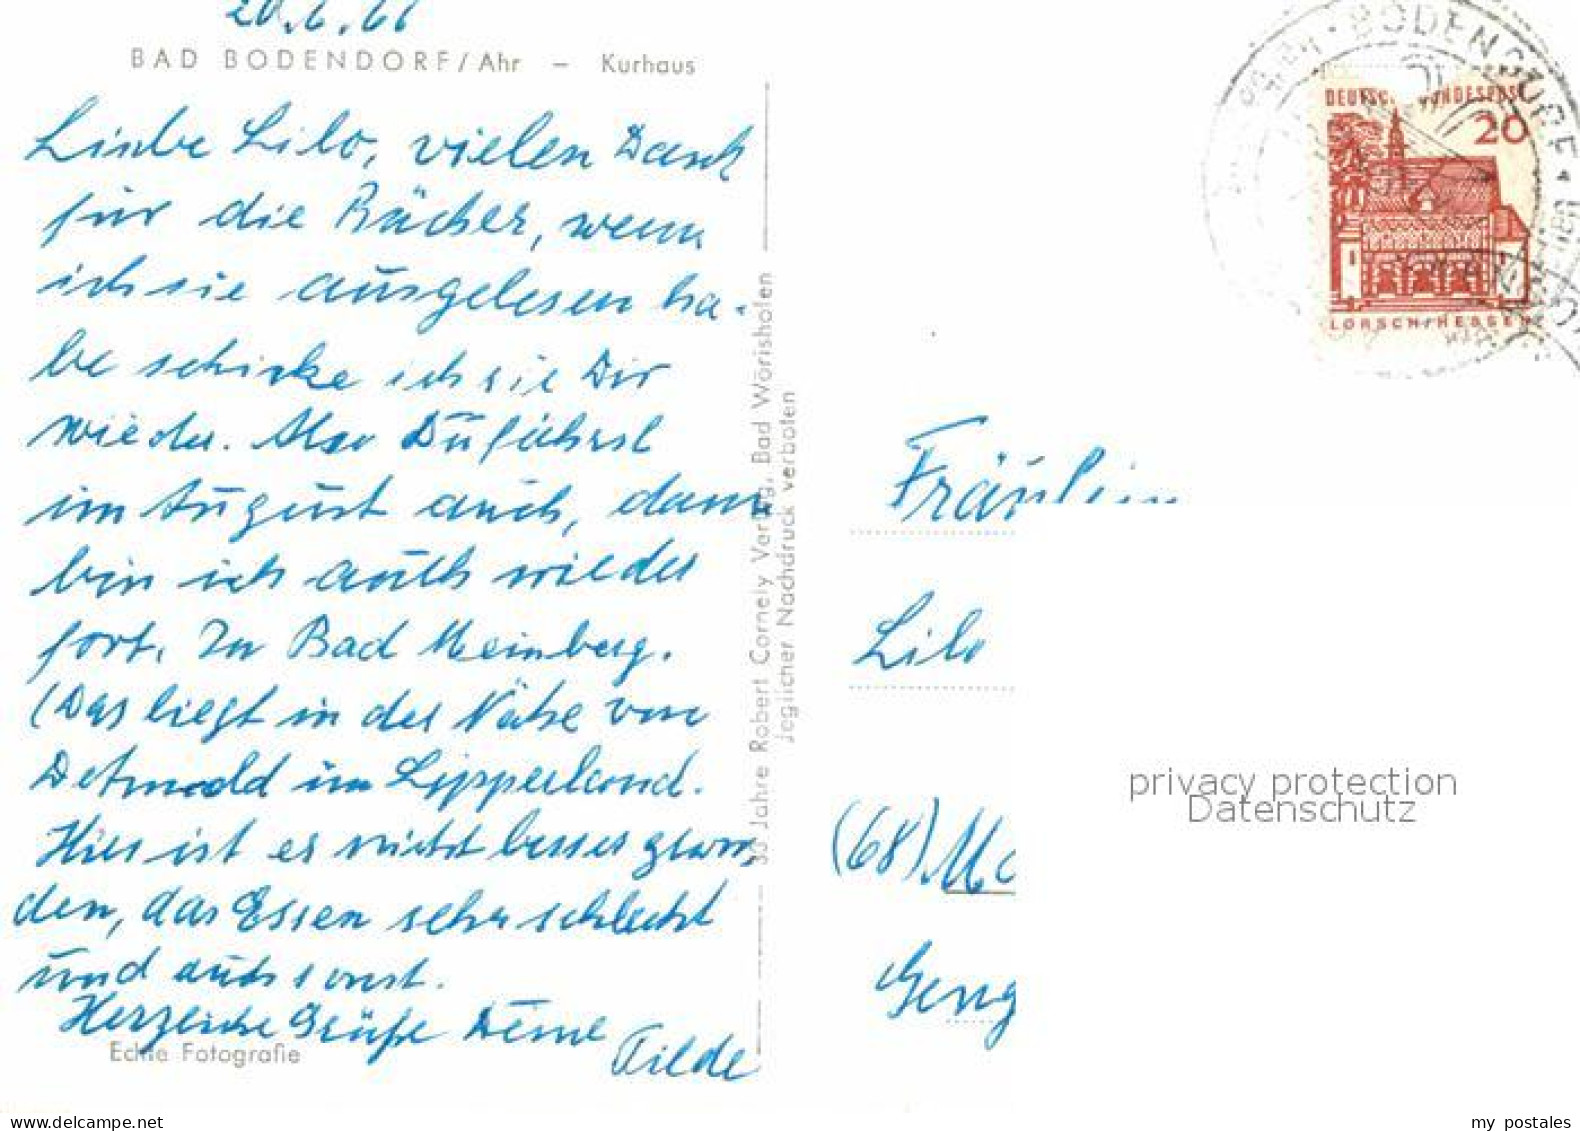 20.6.66
BAD BODENDORF/Ahr – Kurhaus
Liebe Lilo, vielen Dank
für die Bücher, wenn
ich sie ausgelesen ha-
be schicke ich sie Dir
wieder. Also Du fährst
im August auch, dann
bin ich auch wieder
fort. In Bad Meinberg.
(Das liegt in der Nähe von
Detmold im Lipperland.
Hier ist es nicht besser gewor-
den, das Essen sehr schlecht
und auch sonst.
Herzliche Grüße Deine
Tilde
Echte Fotografie
35 Jahre Robert Cornely Verlag, Bad Wörishofen
Jeglicher Nachdruck verboten
BODENDORF
DEUTSCHE BUNDESPOST
20
LORSCH/HESSEN
Fräulein
Lilo
(68) Ma
Geng
privacy protection
Datenschutz
my postales